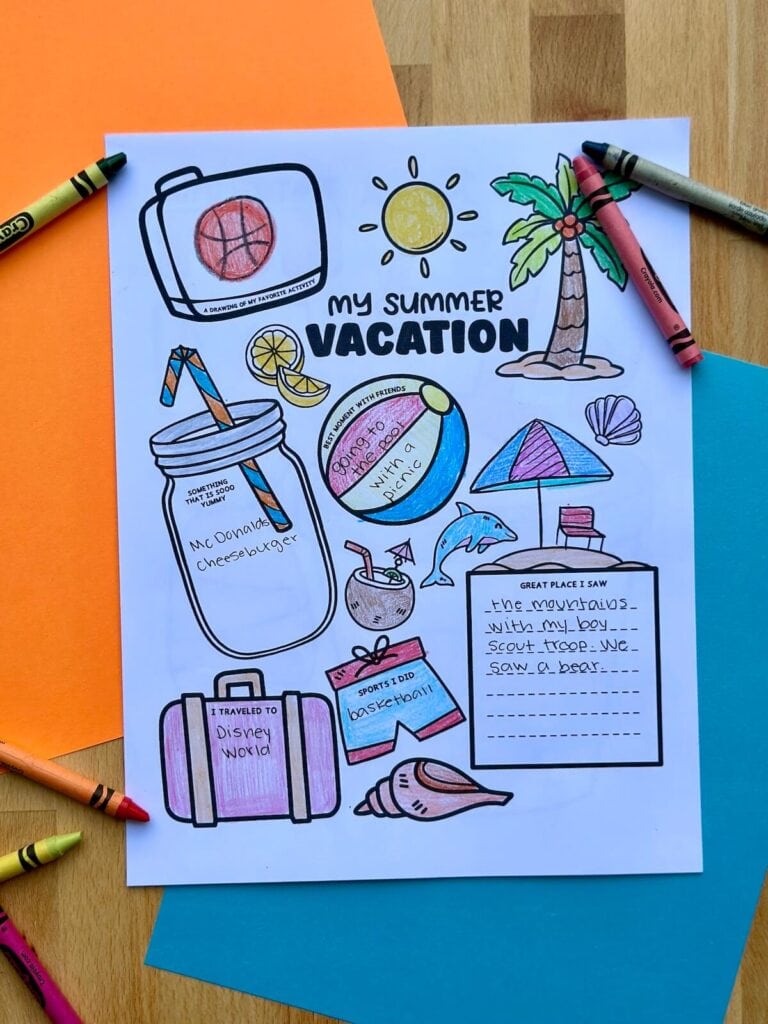 A DRAWING OF MY FAVORITE ACTIVITY
MY SUMMER
VACATION
BEST MOMENT WITH FRIENDS
going to
the pool
with a
picnic
SOMETHING
THAT IS SOOO
YUMMY
McDonalds
Cheeseburger
GREAT PLACE I SAW
the mountains
with my boy
scout troop. We
saw a bear.
SPORTS I DID
basketball
I TRAVELED TO
Disney
World
Crayola.com